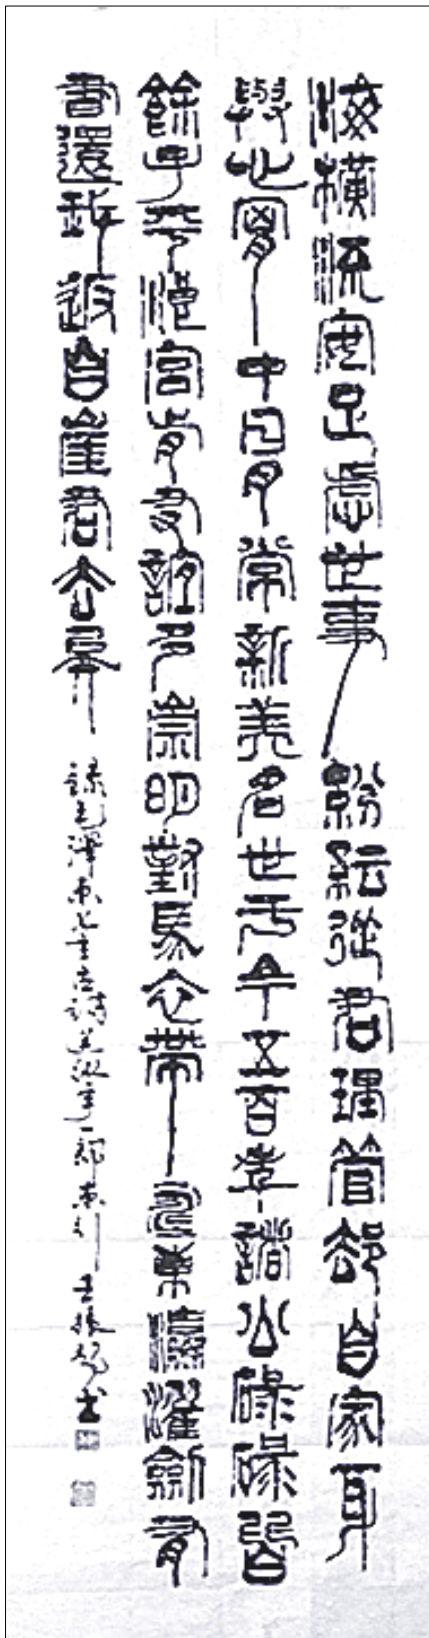 海橫流安足慮世事紛紜從君理管却自家身
與心胸中日月常新美名世于今五百年諸公碌碌皆
餘子平浪宮前友誼多崇明對馬衣帶水東瀛濯劍有
書還我返自崖君去矣 錄毛澤東七古詩送縱宇一郎東行 振書